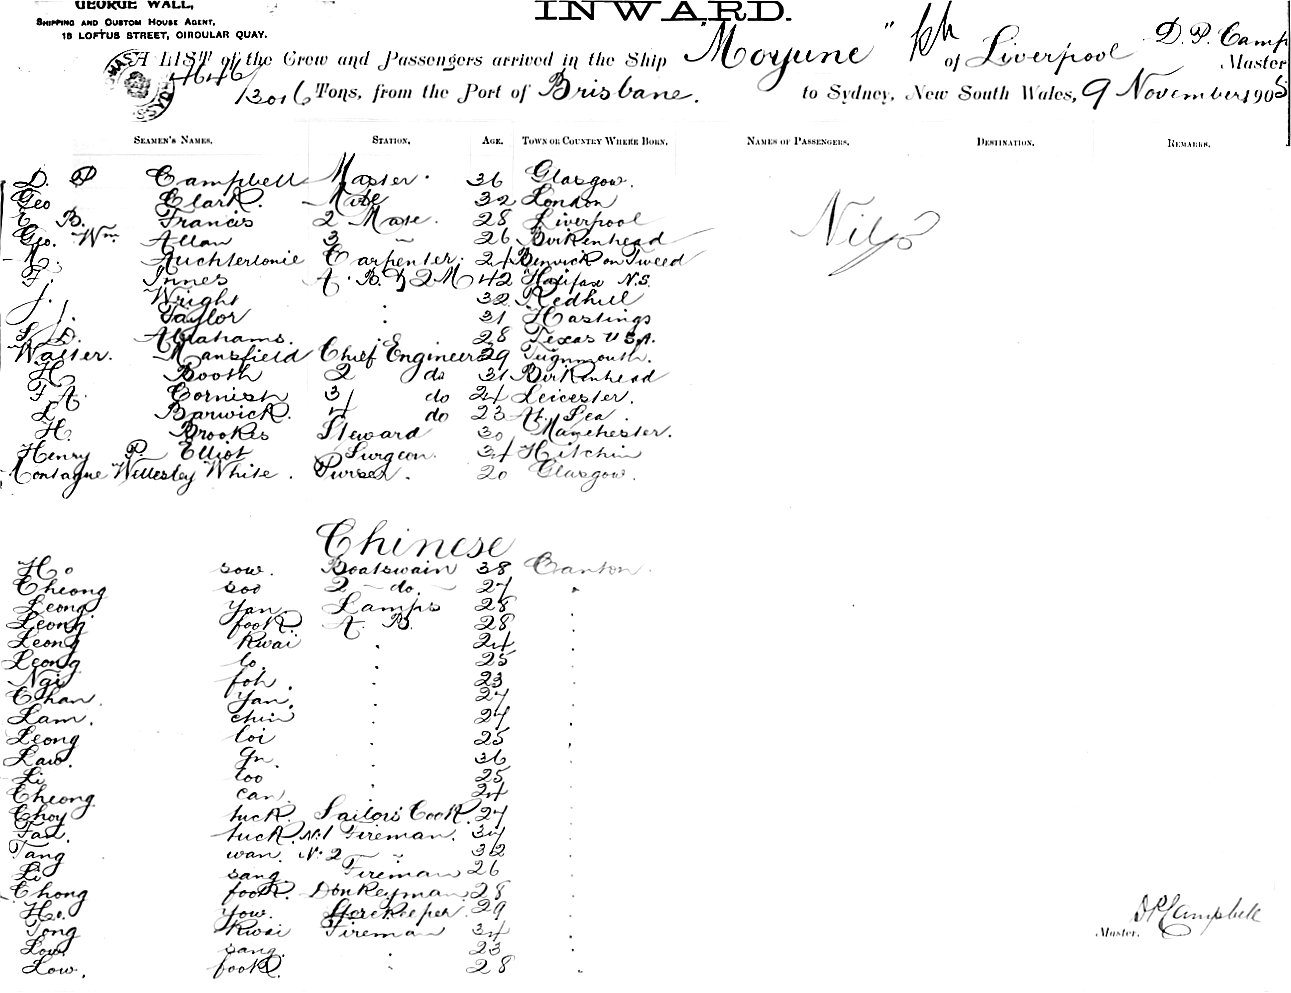 GEORGE WALL,
SHIPPING AND CUSTOM HOUSE AGENT,
18 LOFTUS STREET, CIRCULAR QUAY.
INWARD.
A LIST of the Crew and Passengers arrived in the Ship "Moyune" of Liverpool D. P. Camp Master
Tons, from the Port of Brisbane. to Sydney, New South Wales, 9 November 190
SEAMEN'S NAMES. STATION, AGE. TOWN OR COUNTRY WHERE BORN, NAMES OF PASSENGERS, DESTINATION. REMARKS.
D. P Campbell Master. 36 Glasgow.
Geo Clark. Mate 32 London
E B. Francis 2 Mate. 28 Liverpool
Geo. Wm. Allan 3 " 26 Birkenhead
Nil
Auchterlonie Carpenter. 24 Berwick on Tweed
F. Innes A. B. & 2 M 42 Halifax N.S.
J. Wright 32 Redhill
J. Taylor 31 Hastings
S. D. Abrahams. 28 Texas U.S.A.
Walter. Mansfield Chief Engineer 39 Teignmouth.
H Booth 2 do 31 Birkenhead
F A. Cornish 3 do 24 Leicester.
L. Barwick. 4 do 23 At Sea.
H. Brookes Steward 30 Manchester.
Henry P. Elliot Surgeon. 34 Hitchin
Montague Wellesley White. Purser. 20 Glasgow.
Chinese
Ho sow. Boatswain 38 Canton.
Cheong soo 2 do. 27 "
Leong Yan. Lamps 28 "
Leong fook A. B. 28 "
Leong Kwai " 24 "
Leong lo. " 25 "
Ngi foh. " 23 "
Chan. Yan. " 27 "
Lam. chin " 24 "
Leong loi " 25 "
Law. " 36 "
Li too " 25 "
Cheong. can. " 24 "
Choy tuck. Sailors Cook. 27 "
Fan. tuck. No.1 Fireman. 34 "
Tang wan. No. 2 " 32 "
Li sang. Fireman 26 "
Chong fook. Donkeyman. 28 "
Ho. Yow. Storekeeper. 29 "
Tong Kwai Fireman 34 "
Low sang. " 23 "
Low. fook. " 28 "
D P Campbell
Master.